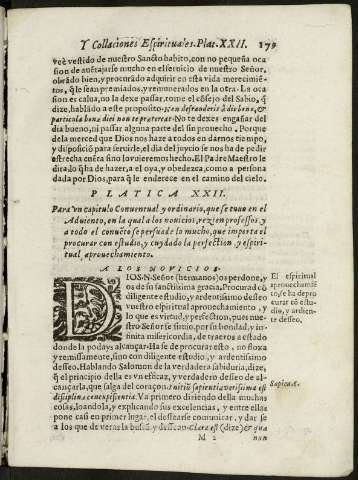 Y Collaciones Espirituales. Plat. XXII. 179
vee vestido de nuestro Sancto habito, con no pequeña oca
sion de auētajarse mucho en el seruicio de nuestro Señor,
obrādo bien, y procurādo adquirir en esta vida merecimiē
tos, q̄ le sean premiados, y remunerados en la otra. La oca
sion es calua, no la dexe passar, tome el cōsejo del Sabio, q̄
dize, hablādo a este proposito: non defrauderis à die bono, &
particula bona diei non te pretereat. No te dexes engañar del
dia bueno, ni passar alguna parte del sin prouecho. Porque
de la merced que Dios nos haze a todos en darnos tiempo,
y disposiciō para seruirle, el dia del juyzio se nos ha de pedir
estrecha cuēta sino lo vuieremos hecho. El Padre Maestro le
dira lo q̄ ha de hazer, a el oya, y obedezca, como a persona
dada por Dios, para q̄ le enderece en el camino del cielo.
PLATICA XXII.
Para vn capitulo Conuentual y ordinario, que se tuuo en el
Aduiento, en la qual a los nouicios, rezien professos, y
a todo el conuēto se persuade lo mucho, que importa el
procurar con estudio, y cuydado la perfection, y espiri-
tual aprouechamiento.
A LOS NOVICIOS.
DIOS N. Señor (hermanos) os perdone, y
os de su sanctissima gracia. Procurad cō
diligente estudio, y ardentissimo desseo
vuestro espiritual aprouechamiento, y
lo que es virtud, y perfection, pues nue-
stro Señor se siruio, por su bondad, y in-
finita misericordia, de traeros a estado
donde la podays alcançar. Ha se de procurar esto, no floxa
y remissamente, sino con diligente estudio, y ardentissimo
desseo. Hablando Salomon de la verdadera sabiduria, dize,
q̄ el principio della es vn eficaz, y verdadero desseo de al-
cançarla, que salga del coraçon. Initiū sapientiæ verissima est
disciplinæ concupiscentia. Va primero diziendo della muchas
cosas, loandola, y explicando sus excelencias, y entre ellas
pone casi en primer lugar, el dessearse comunicar, y dar se
a los que de veras la buscā y dessean. Clara est (dize) & quæ
M 2 nun
El espiritual
aprouechamiē
to, se ha de pro
curar cō estu-
dio, y ardien-
te desseo.
Sapiē. 6.